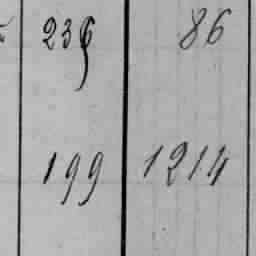 236 86
199 1214